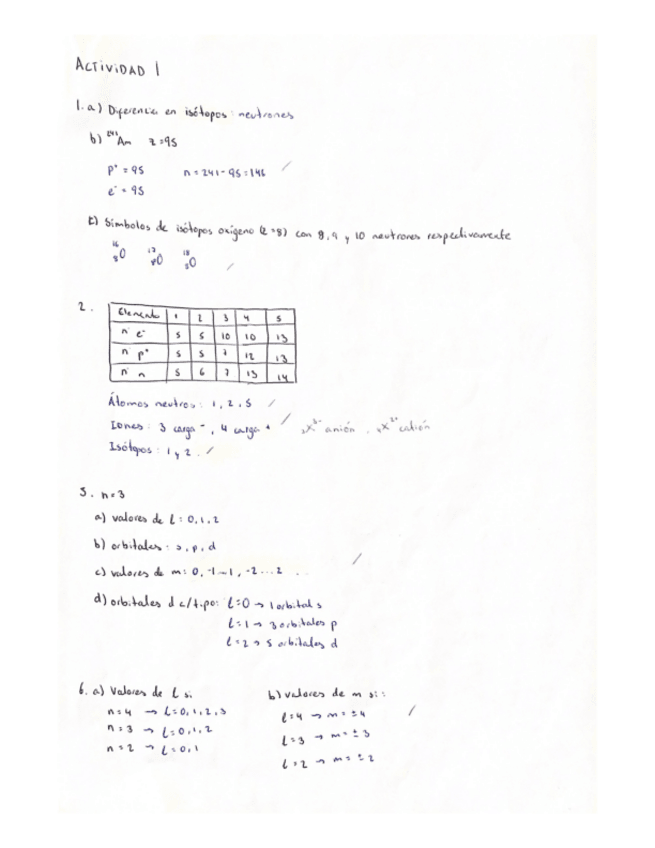 ACTIVIDAD 1
1. a) Diferencia en isótopos: neutrones
b) ²⁴¹Am z=95
p⁺ = 95 n = 241-95 = 146
e⁻ = 95
c) Símbolos de isótopos oxígeno (z=8) con 8, 9 y 10 neutrones respectivamente
¹⁶₈O ¹⁷₈O ¹⁸₈O
2.
Elemento 1 2 3 4 5
nº e⁻ 5 5 10 10 13
nº p⁺ 5 5 7 12 13
nº n 5 6 7 13 14
Átomos neutros: 1, 2, 5
Iones: 3 carga -, 4 carga + X³⁻ anión, X²⁺ catión
Isótopos: 1 y 2.
5. n=3
a) valores de l: 0, 1, 2
b) orbitales: s, p, d
c) valores de m: 0, -1...1, -2...2
d) orbitales d c/tipo: l=0 → 1 orbital s
l=1 → 3 orbitales p
l=2 → 5 orbitales d
6. a) Valores de l si b) valores de m si:
n=4 → l=0, 1, 2, 3 l=4 → m=±4
n=3 → l=0, 1, 2 l=3 → m=±3
n=2 → l=0, 1 l=2 → m=±2